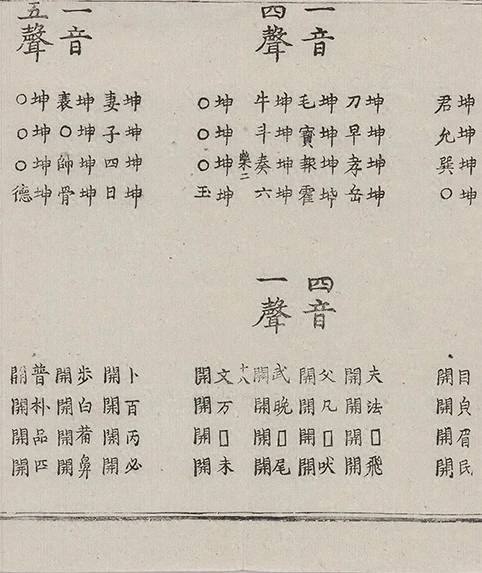 坤坤坤坤
君允巽○
一音
四聲
坤坤坤坤
刀早孝岳
坤坤坤坤
毛寶報霍
坤坤坤坤
牛斗奏六
樂二
坤坤坤坤
○○○玉
一音
五聲
坤坤坤坤
妻子四日
坤坤坤坤
衰○帥骨
坤坤坤坤
○○○德
目皃眉民
開開開開
四音
一聲
夫法□飛
開開開開
父凡□吠
開開開開
武晚□尾
開開開開
十八
文万□未
開開開開
卜百丙必
開開開開
步白葡鼻
開開開開
普朴品匹
開開開開